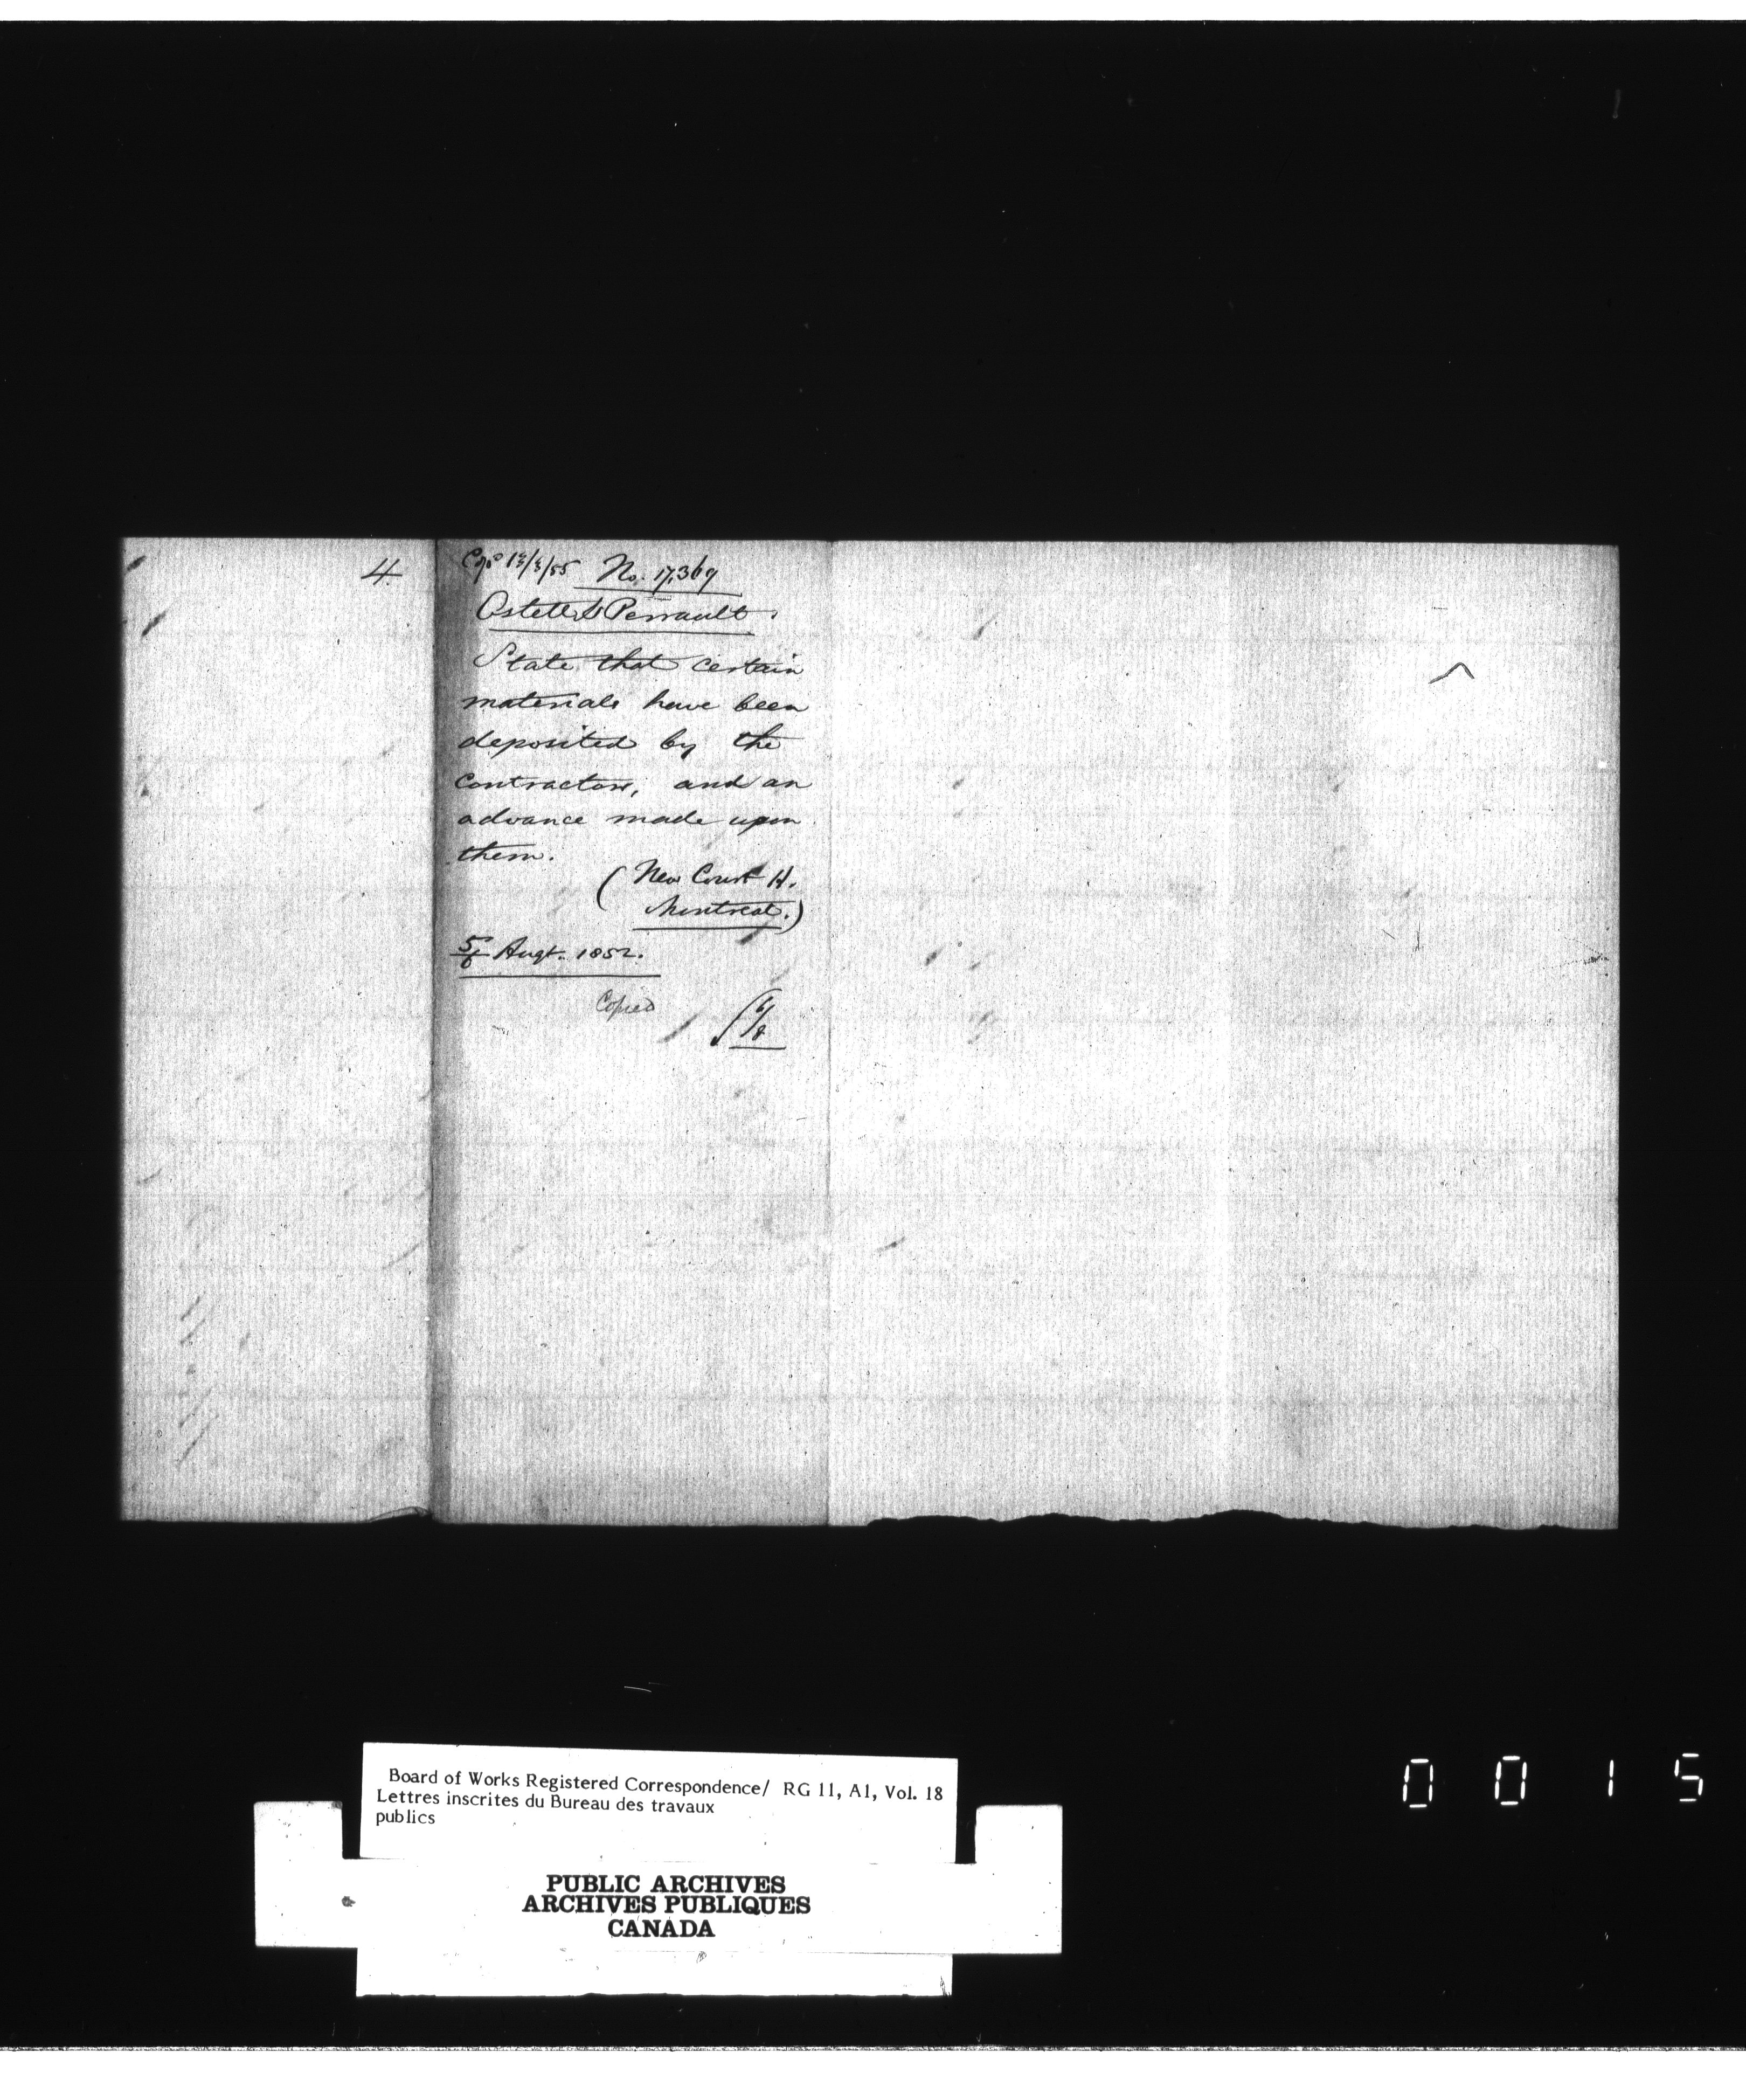 4
No. 17,369
Ostell & Perrault.
State that certain
materials have been
deposited by the
Contractors, and an
advance made upon
them.
(New Court H.
Montreal.)
5/6 Augt. 1852.
Copied
6/8
Board of Works Registered Correspondence/ RG 11, A1, Vol. 18
Lettres inscrites du Bureau des travaux
publics
PUBLIC ARCHIVES
ARCHIVES PUBLIQUES
CANADA
0015